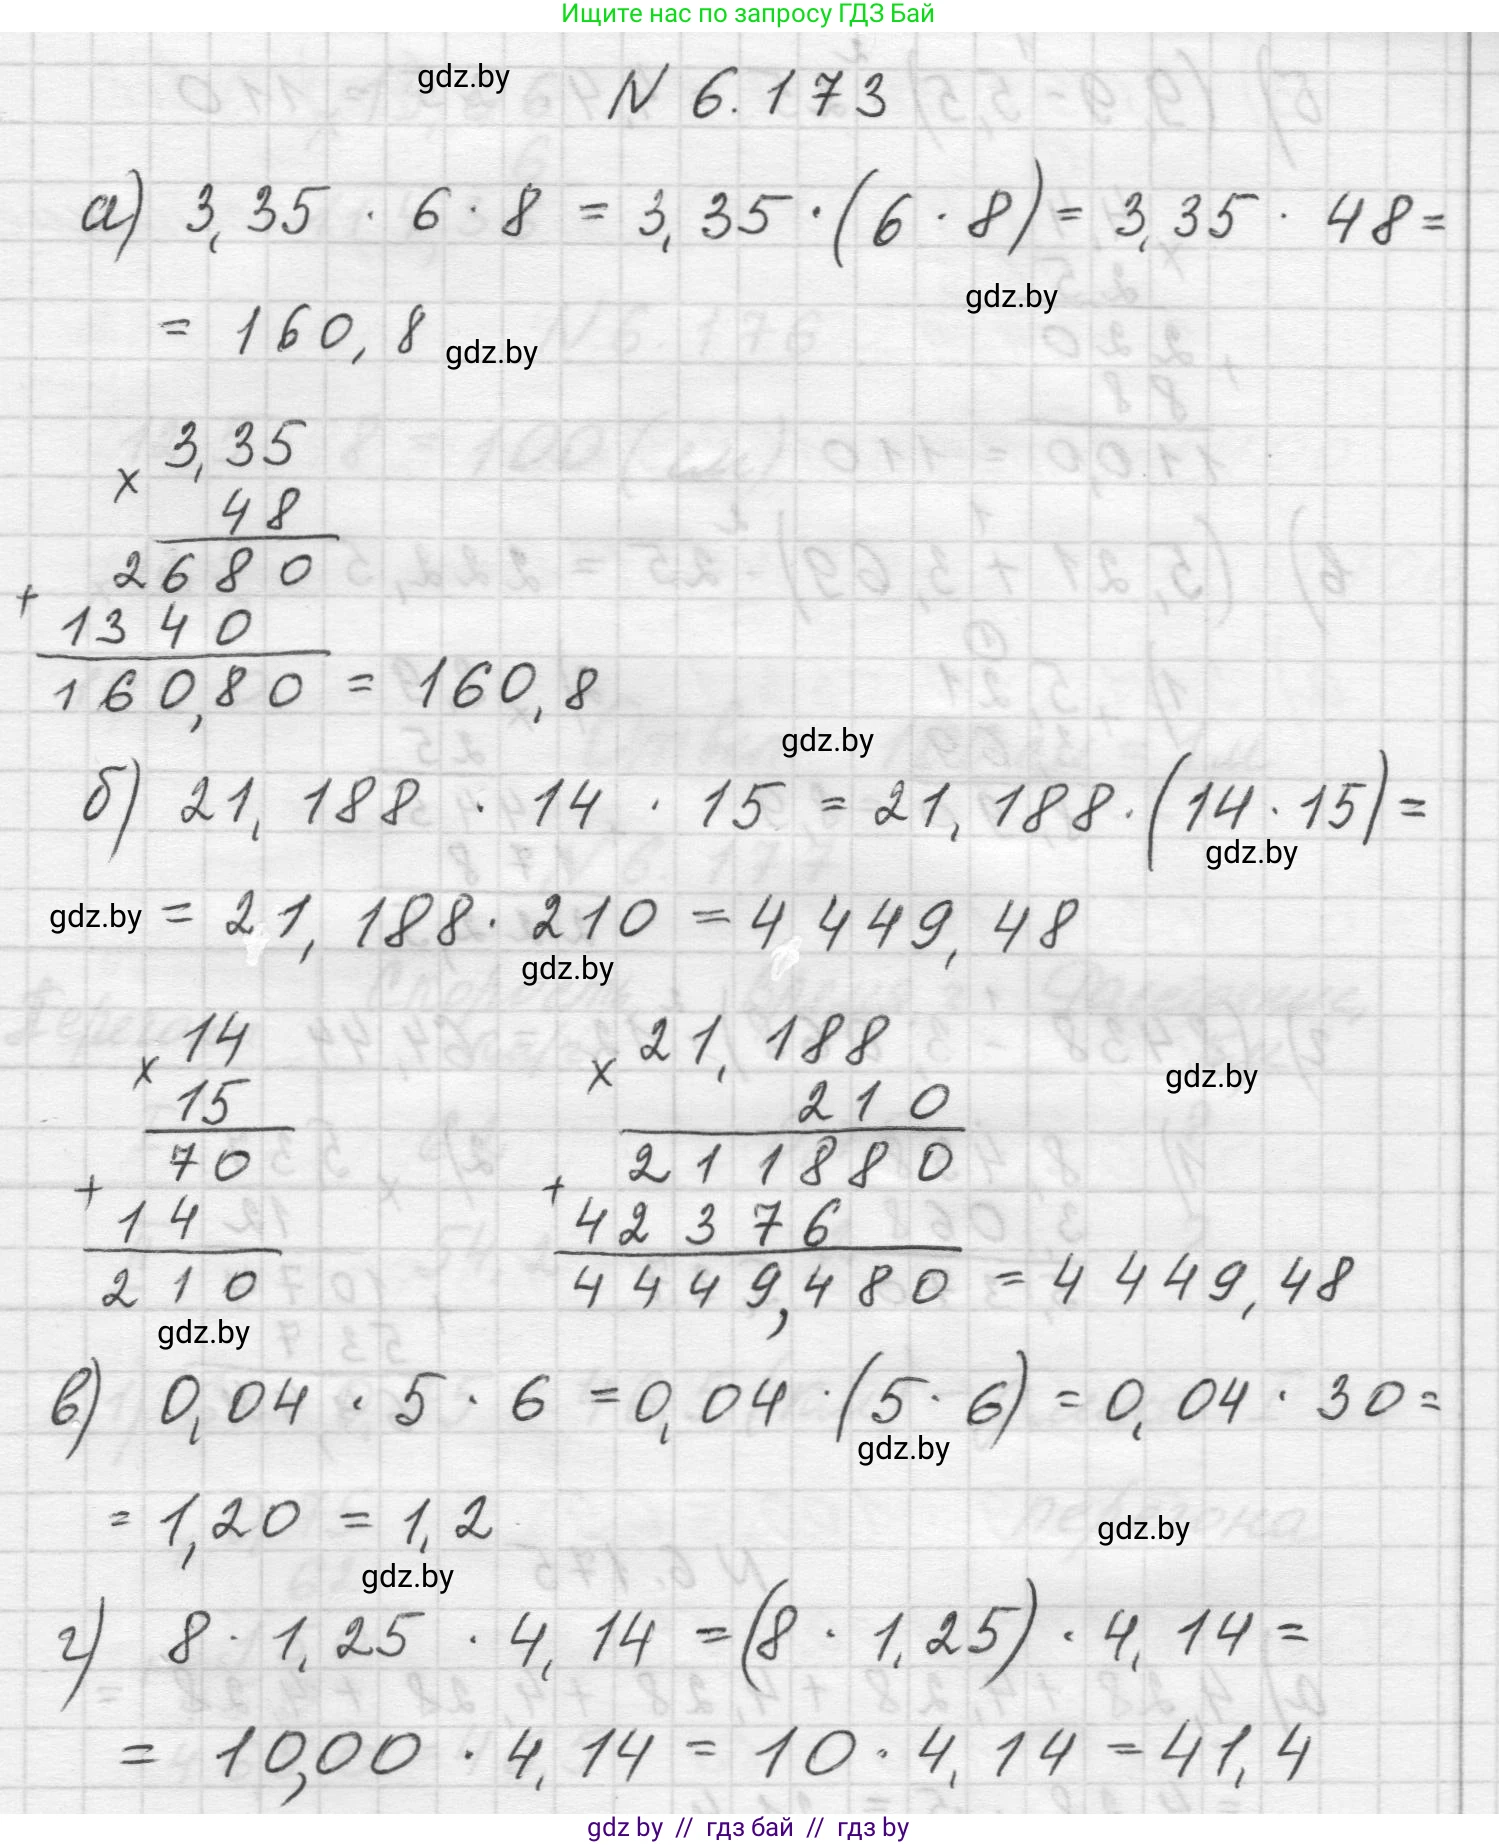 Ищите нас по запросу ГДЗ Бай
gdz.by
N 6.173
а) 3,35 · 6 · 8 = 3,35 · (6 · 8) = 3,35 · 48 =
gdz.by
= 160,8 gdz.by
3,35
×
48
2680
+
1340
160,80 = 160,8
gdz.by
б) 21,188 · 14 · 15 = 21,188 · (14 · 15) =
gdz.by
gdz.by = 21,188 · 210 = 4449,48
gdz.by
14 21,188
× ×
gdz.by
15 210
70 211880
+ +
14 42376
210 4449,480 = 4449,48
gdz.by
в) 0,04 · 5 · 6 = 0,04 · (5 · 6) = 0,04 · 30 =
gdz.by
= 1,20 = 1,2
gdz.by
gdz.by
г) 8 · 1,25 · 4,14 = (8 · 1,25) · 4,14 =
= 10,00 · 4,14 = 10 · 4,14 = 41,4
gdz.by // гдз бай // гдз by